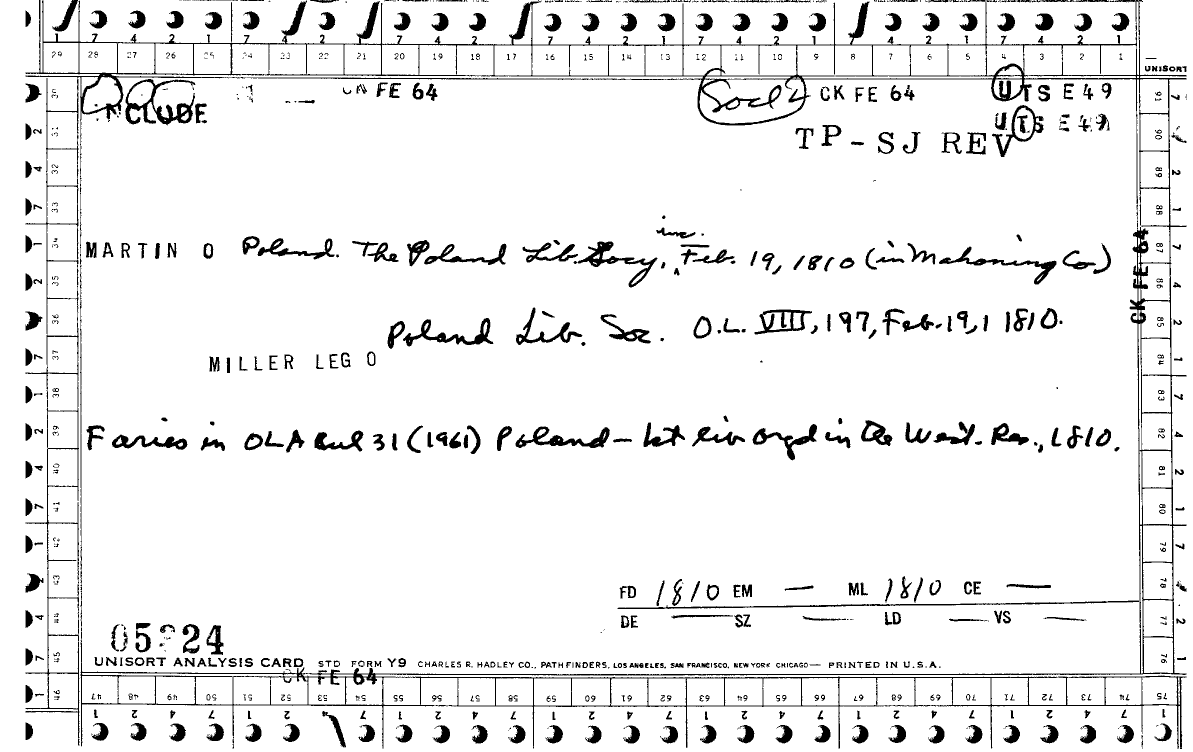 1 7 4 2 1 7 4 2 1 7 4 2 1 7 4 2 1 7 4 2 1 7 4 2 1 7 4 2 1
29 28 27 26 25 24 23 22 21 20 19 18 17 16 15 14 13 12 11 10 9 8 7 6 5 4 3 2 1
UNISORT
INCLUDE CK FE 64 Socl L CK FE 64 UTS E49
UTS E49
TP-SJ REV
inc.
MARTIN O Poland. The Poland Lib. Socy, ‸ Feb. 19, 1810 (in Mahoning Co.)
CK FE 64
Poland Lib. Soc. O.L. VIII, 197, Feb. 19, 1810.
MILLER LEG O
Faries in OLA Bul 31 (1961) Poland — 1st lib orgd in the West. Res., 1810.
FD 1810 EM — ML 1810 CE —
DE — SZ — LD — VS —
UNISORT ANALYSIS CARD STD FORM Y9 CHARLES R. HADLEY CO., PATHFINDERS, LOS ANGELES, SAN FRANCISCO, NEW YORK CHICAGO— PRINTED IN U.S.A.
CK FE 64
47 48 49 50 51 52 53 54 55 56 57 58 59 60 61 62 63 64 65 66 67 68 69 70 71 72 73 74 75
1 2 4 7 1 2 4 7 1 2 4 7 1 2 4 7 1 2 4 7 1 2 4 7 1 2 4 7 1